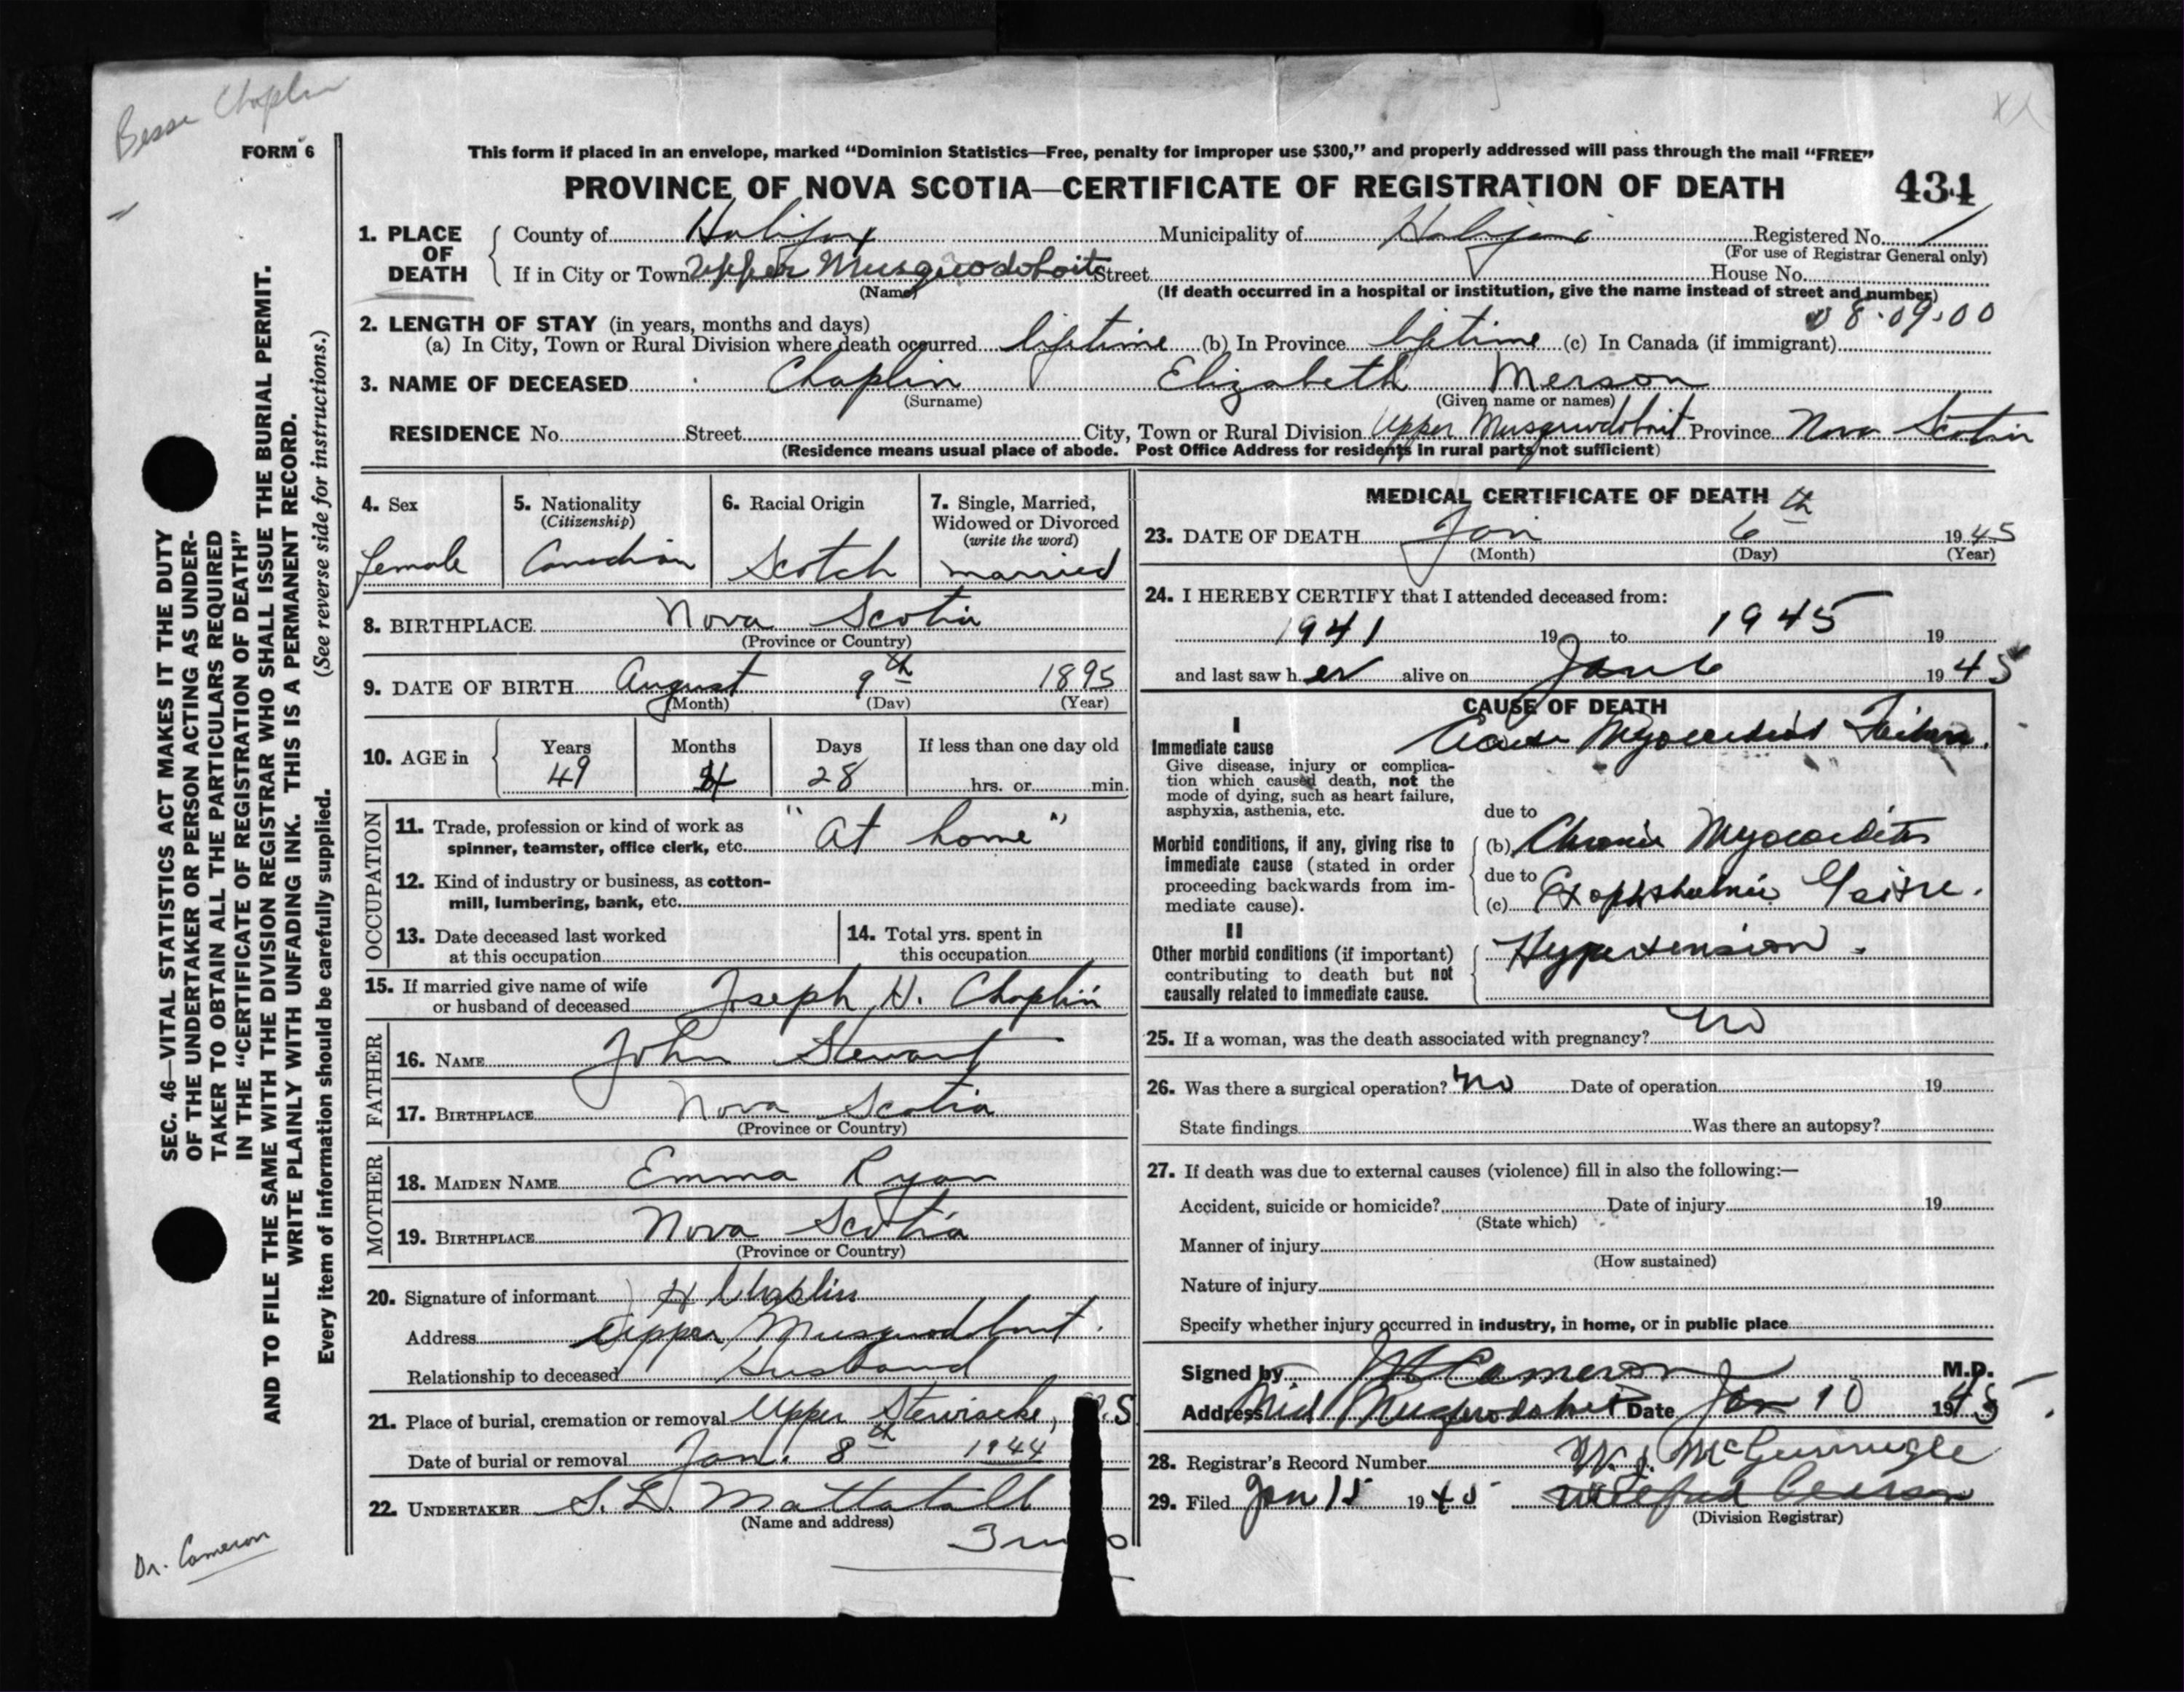 Besse Chaplin
FORM 6
This form if placed in an envelope, marked "Dominion Statistics—Free, penalty for improper use $300," and properly addressed will pass through the mail "FREE"
PROVINCE OF NOVA SCOTIA—CERTIFICATE OF REGISTRATION OF DEATH 434
1. PLACE OF DEATH
County of Halifax Municipality of Halifax Registered No. 1
(For use of Registrar General only)
If in City or Town Upper Musquodoboit Street House No.
(Name) (If death occurred in a hospital or institution, give the name instead of street and number)
08.09.00
2. LENGTH OF STAY (in years, months and days)
(a) In City, Town or Rural Division where death occurred lifetime (b) In Province lifetime (c) In Canada (if immigrant)
3. NAME OF DECEASED Chaplin Elizabeth Merson
(Surname) (Given name or names)
RESIDENCE No. Street City, Town or Rural Division Upper Musquodoboit Province Nova Scotia
(Residence means usual place of abode. Post Office Address for residents in rural parts not sufficient)
4. Sex
female
5. Nationality
(Citizenship)
Canadian
6. Racial Origin
Scotch
7. Single, Married,
Widowed or Divorced
(write the word)
married
8. BIRTHPLACE Nova Scotia
(Province or Country)
9. DATE OF BIRTH August 9th 1895
(Month) (Day) (Year)
10. AGE in
Years Months Days If less than one day old
49 4 28 hrs. or min.
OCCUPATION
11. Trade, profession or kind of work as
spinner, teamster, office clerk, etc. "At home"
12. Kind of industry or business, as cotton-
mill, lumbering, bank, etc.
13. Date deceased last worked
at this occupation
14. Total yrs. spent in
this occupation
15. If married give name of wife
or husband of deceased Joseph H. Chaplin
FATHER
16. NAME John Stewart
17. BIRTHPLACE Nova Scotia
(Province or Country)
MOTHER
18. MAIDEN NAME Emma Ryan
19. BIRTHPLACE Nova Scotia
(Province or Country)
20. Signature of informant H Chaplin
Address Upper Musquodoboit.
Relationship to deceased Husband
21. Place of burial, cremation or removal Upper Stewiacke, N.S
Date of burial or removal Jan. 8th 1944
22. UNDERTAKER S. L. Mattatall
(Name and address)
MEDICAL CERTIFICATE OF DEATH
23. DATE OF DEATH Jan 6th 1945
(Month) (Day) (Year)
24. I HEREBY CERTIFY that I attended deceased from:
1941 19 to 1945 19
and last saw her alive on Jan 6 1945
CAUSE OF DEATH
I
Immediate cause Acute Myocardial Failure.
Give disease, injury or complica-
tion which caused death, not the
mode of dying, such as heart failure,
asphyxia, asthenia, etc.
due to
Morbid conditions, if any, giving rise to
immediate cause (stated in order
proceeding backwards from im-
mediate cause).
(b) Chronic Myocarditis
due to
(c) Exophthalmic Goitre.
II
Other morbid conditions (if important)
contributing to death but not
causally related to immediate cause.
Hypertension.
25. If a woman, was the death associated with pregnancy? no
26. Was there a surgical operation? no Date of operation 19
State findings Was there an autopsy?
27. If death was due to external causes (violence) fill in also the following:—
Accident, suicide or homicide? Date of injury 19
(State which)
Manner of injury
(How sustained)
Nature of injury
Specify whether injury occurred in industry, in home, or in public place
Signed by Cameron M.D.
Address Mid Musquodoboit Date Jan 10 1945
28. Registrar's Record Number
29. Filed Jan 15 1945
(Division Registrar)
SEC. 46—VITAL STATISTICS ACT MAKES IT THE DUTY
OF THE UNDERTAKER OR PERSON ACTING AS UNDER-
TAKER TO OBTAIN ALL THE PARTICULARS REQUIRED
IN THE "CERTIFICATE OF REGISTRATION OF DEATH"
AND TO FILE THE SAME WITH THE DIVISION REGISTRAR WHO SHALL ISSUE THE BURIAL PERMIT.
WRITE PLAINLY WITH UNFADING INK. THIS IS A PERMANENT RECORD.
Every item of information should be carefully supplied. (See reverse side for instructions.)
Dr. Cameron